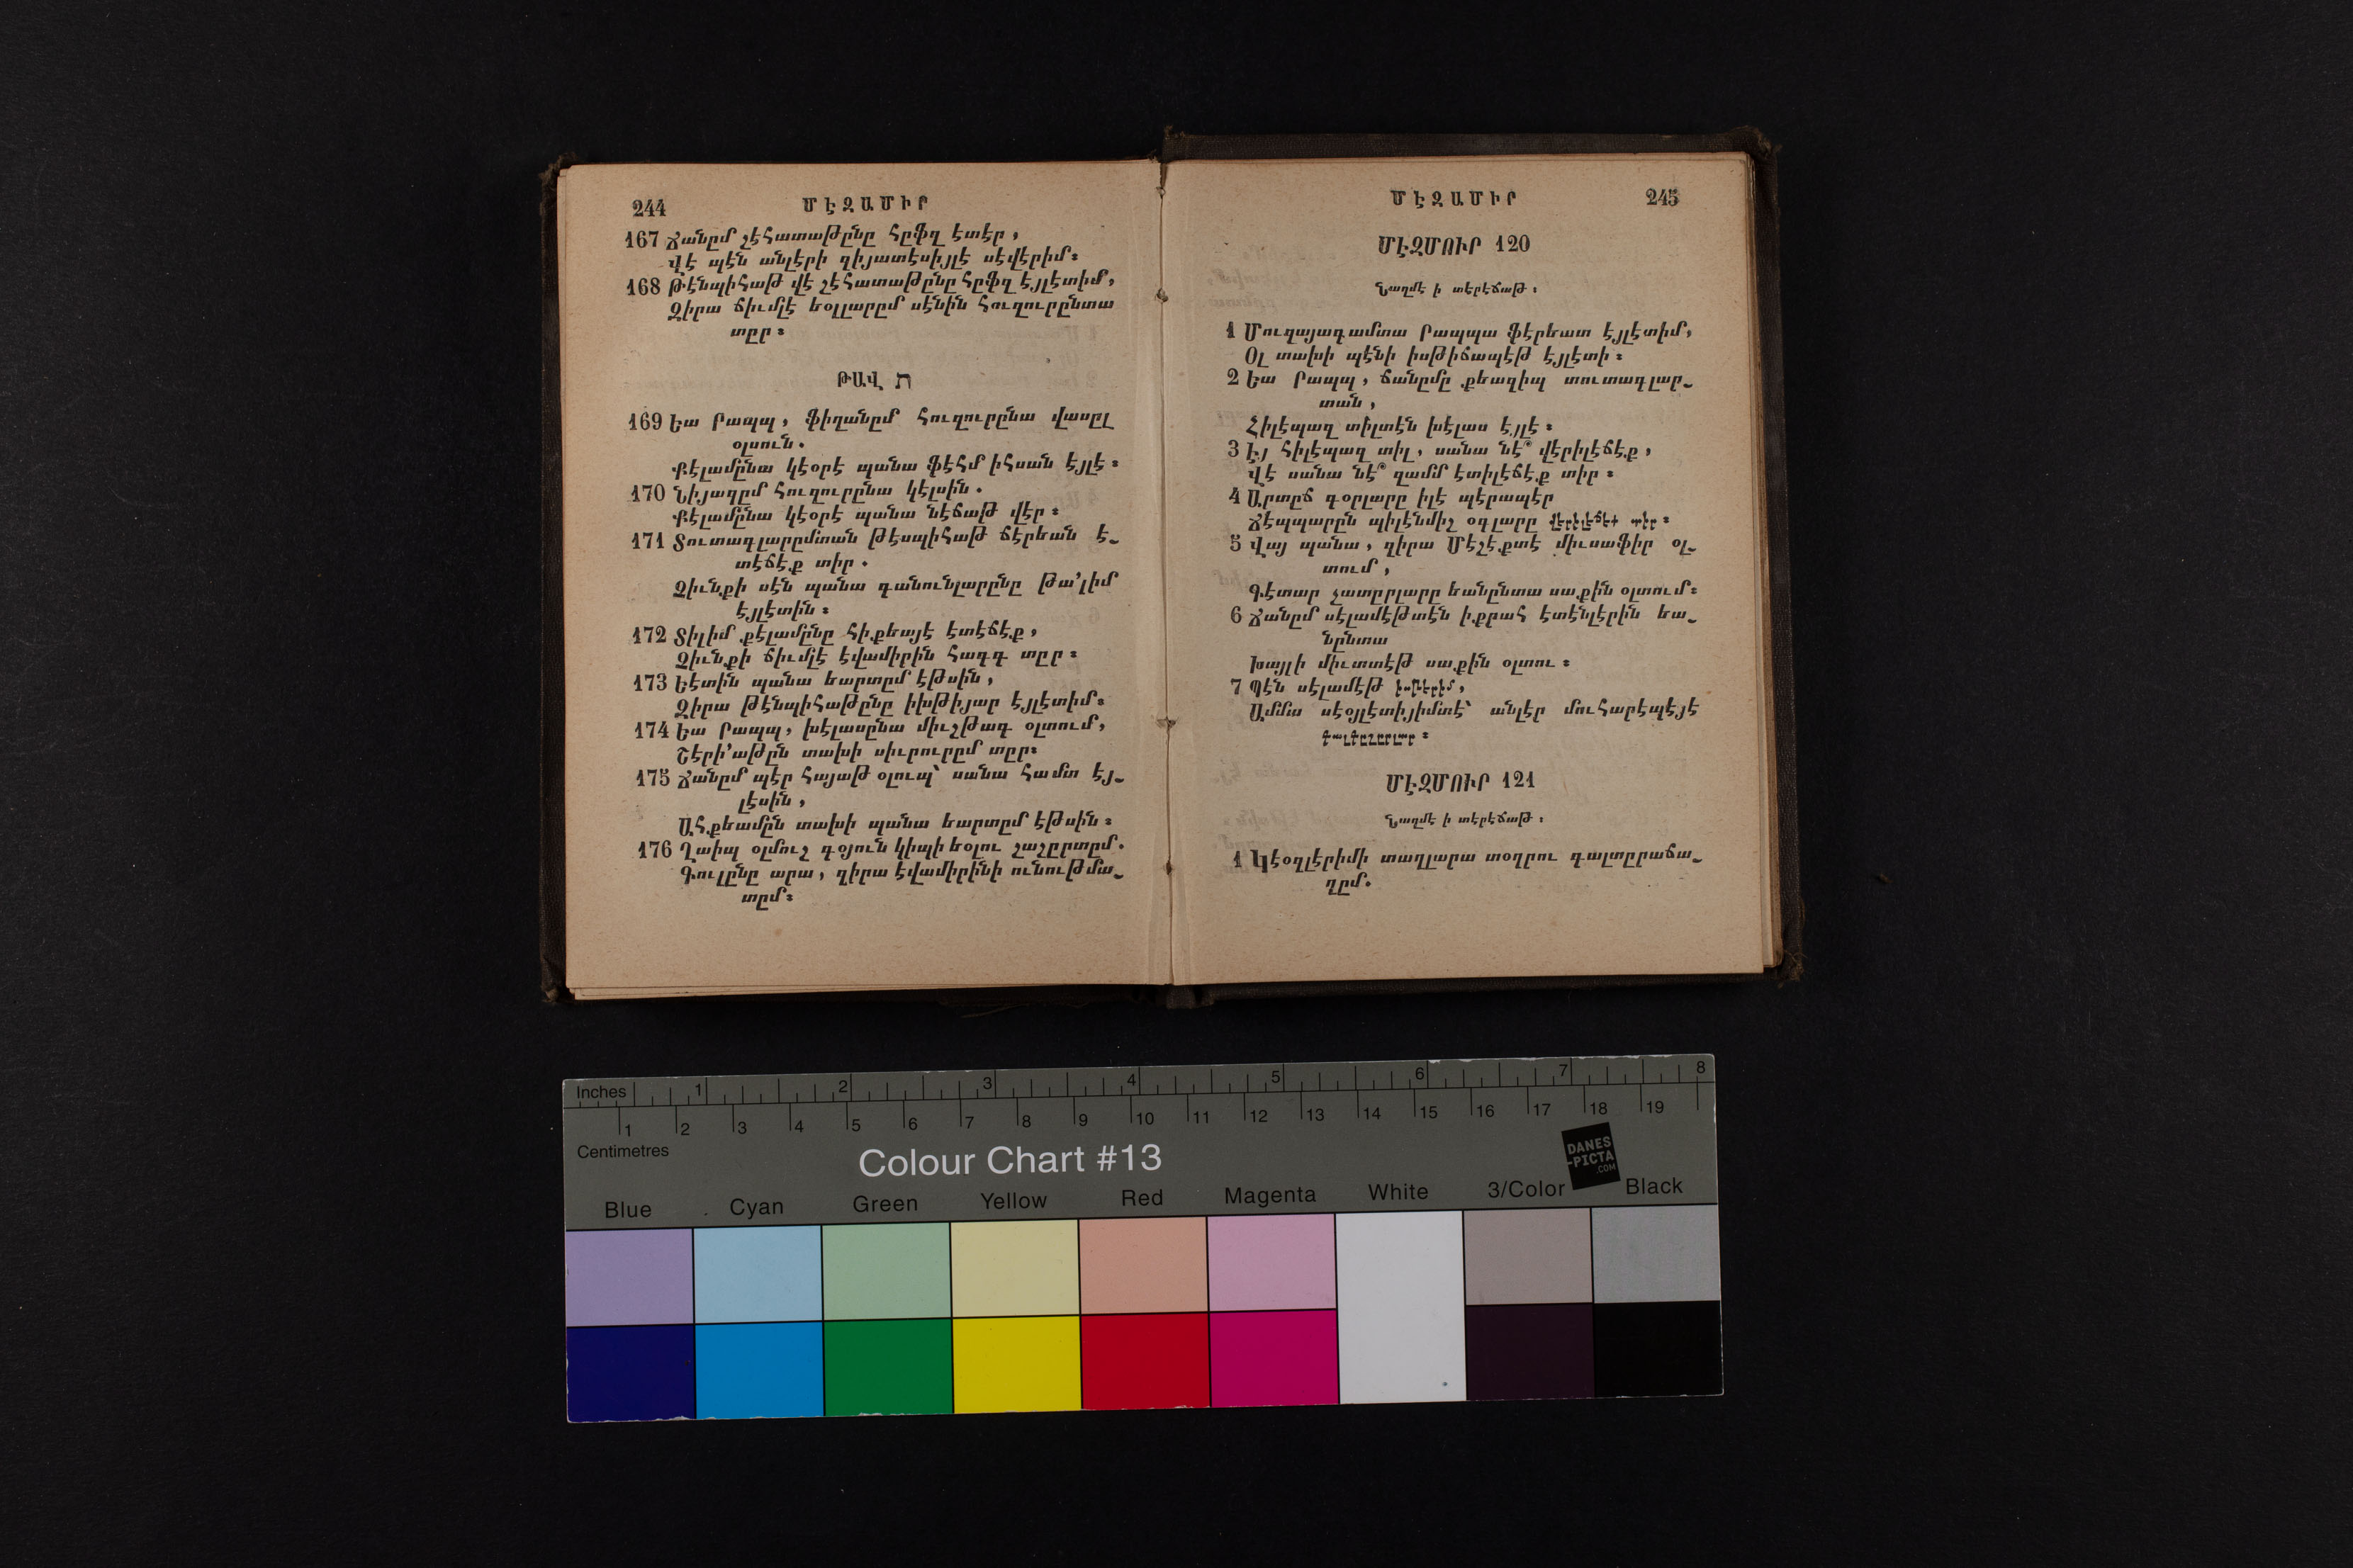 244 ՄԷԶԱՄԻՐ
167 Ճանըմ շէհատաթընը հըֆզ էտէր,
Վէ պէն անլէրի զիյատէսիյլէ սէվէրիմ։
168 Թէնպիհաթ վէ շէհատաթընը հըֆզ էյլէտիմ,
Զիրա ճիւմլէ եօլլարըմ սէնին հուզուրընտա
տըր։
ԹԱՎ ת
169 Եա Րապպ, ֆիղանըմ հուզուրընա վասըլ
օլսուն.
Քէլամընա կէօրէ պանա ֆէհմ իհսան էյլէ։
170 Նիյազըմ հուզուրընա կէլսին.
Քէլամընա կէօրէ պանա նէճաթ վէր։
171 Տուտագլարըմտան թէսպիհաթ ճէրեան է֊
տէճէք տիր.
Զիւնքի սէն պանա գանունլարընը թա՛լիմ
էյլէտին։
172 Տիլիմ քէլամընը հիքեայէ էտէճէք,
Զիւնքի ճիւմլէ էվամիրին հագգ տըր։
173 Եէտին պանա եարտըմ էթսին,
Զիրա թէնպիհաթընը իխթիյար էյլէտիմ։
174 Եա Րապպ, խէլասընա միւշթագ օլտում,
Շէրի՛աթըն տախի սիւրուրըմ տըր։
175 Ճանըմ պէր հայաթ օլուպ՝ սանա համտ էյ֊
լէսին,
Ահքեամըն տախի պանա եարտըմ էթսին։
176 Ղաիպ օլմուշ գօյուն կիպի եօլու շաշըրտըմ.
Գուլընը արա, զիրա էվամիրինի ունութմա֊
տըմ։
ՄԷԶԱՄԻՐ 245
ՄԷԶՄՈՒՐ 120
Նաղմէ ի տէրէճաթ։
1 Մուզայագամտա Րապպա ֆէրեատ էյլէտիմ,
Օլ տախի պէնի իսթիճապէթ էյլէտի։
2 Եա Րապպ, ճանըմը քեազիպ տուտագլար֊
տան,
Հիլէպազ տիլտէն խէլաս էյլէ։
3 Էյ հիլէպազ տիլ, սանա նէ՞ վէրիլէճէք,
Վէ սանա նէ՞ զամմ էտիլէճէք տիր։
4 Արտըճ գօրլարը իլէ պէրապէր
Ճէպպարըն պիլէնմիշ օգլարը վէրիլէճէք տիր։
5 Վայ պանա, զիրա Մէշէքտէ միւսաֆիր օլ֊
տում,
Գէտար չատըրլարը եանընտա սաքին օլտում։
6 Ճանըմ սէլամէթտէն իքրահ էտէնլէրին եա֊
նընտա
Խայլի միւտտէթ սաքին օլտու։
7 Պէն սէլամէթ իսթէրիմ,
Ամմա սէօյլէտիյիմտէ՝ անլէր մուհարէպէյէ
գալգըշըրլար։
ՄԷԶՄՈՒՐ 121
Նաղմէ ի տէրէճաթ։
1 Կէօզլէրիմի տաղլարա տօղրու գալտըրաճա֊
ղըմ.
Inches 1 2 3 4 5 6 7 8
1 2 3 4 5 6 7 8 9 10 11 12 13 14 15 16 17 18 19
Centimetres
Colour Chart #13
DANES
-PICTA
.COM
Blue Cyan Green Yellow Red Magenta White 3/Color Black